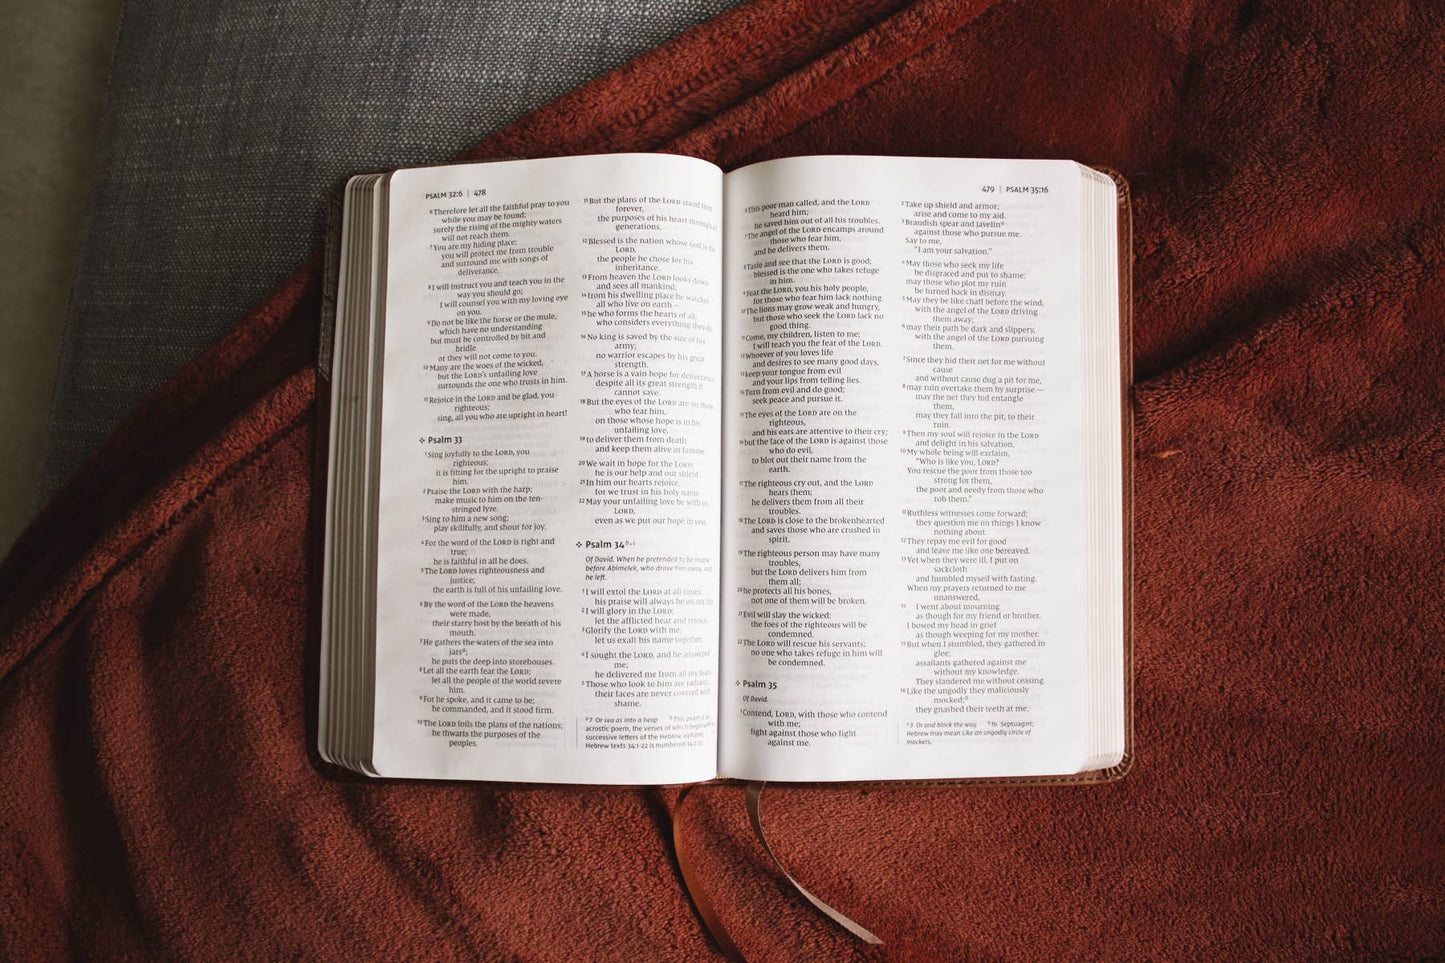 PSALM 32:6 | 478
⁶Therefore let all the faithful pray to you
while you may be found;
surely the rising of the mighty waters
will not reach them.
⁷You are my hiding place;
you will protect me from trouble
and surround me with songs of
deliverance.
⁸I will instruct you and teach you in the
way you should go;
I will counsel you with my loving eye
on you.
⁹Do not be like the horse or the mule,
which have no understanding
but must be controlled by bit and
bridle
or they will not come to you.
¹⁰Many are the woes of the wicked,
but the LORD's unfailing love
surrounds the one who trusts in him.
¹¹Rejoice in the LORD and be glad, you
righteous;
sing, all you who are upright in heart!
Psalm 33
¹Sing joyfully to the LORD, you
righteous;
it is fitting for the upright to praise
him.
²Praise the LORD with the harp;
make music to him on the ten-
stringed lyre.
³Sing to him a new song;
play skillfully, and shout for joy.
⁴For the word of the LORD is right and
true;
he is faithful in all he does.
⁵The LORD loves righteousness and
justice;
the earth is full of his unfailing love.
⁶By the word of the LORD the heavens
were made,
their starry host by the breath of his
mouth.
⁷He gathers the waters of the sea into
jarsᵃ;
he puts the deep into storehouses.
⁸Let all the earth fear the LORD;
let all the people of the world revere
him.
⁹For he spoke, and it came to be;
he commanded, and it stood firm.
¹⁰The LORD foils the plans of the nations;
he thwarts the purposes of the
peoples.
¹¹But the plans of the LORD stand firm
forever,
the purposes of his heart through all
generations.
¹²Blessed is the nation whose God is the
LORD,
the people he chose for his
inheritance.
¹³From heaven the LORD looks down
and sees all mankind;
¹⁴from his dwelling place he watches
all who live on earth —
¹⁵he who forms the hearts of all,
who considers everything they do.
¹⁶No king is saved by the size of his
army;
no warrior escapes by his great
strength.
¹⁷A horse is a vain hope for deliverance,
despite all its great strength it
cannot save.
¹⁸But the eyes of the LORD are on those
who fear him,
on those whose hope is in his
unfailing love,
¹⁹to deliver them from death
and keep them alive in famine.
²⁰We wait in hope for the LORD;
he is our help and our shield.
²¹In him our hearts rejoice,
for we trust in his holy name.
²²May your unfailing love be with us,
LORD,
even as we put our hope in you.
Psalm 34ᵇ,ᶜ
Of David. When he pretended to be insane
before Abimelek, who drove him away, and
he left.
¹I will extol the LORD at all times;
his praise will always be on my lips.
²I will glory in the LORD;
let the afflicted hear and rejoice.
³Glorify the LORD with me;
let us exalt his name together.
⁴I sought the LORD, and he answered
me;
he delivered me from all my fears.
⁵Those who look to him are radiant;
their faces are never covered with
shame.
ᵃ7 Or sea as into a heap ᵇThis psalm is an
acrostic poem, the verses of which begin with
successive letters of the Hebrew alphabet.
Hebrew texts 34:1-22 is numbered 34:2-23.
479 | PSALM 35:16
⁶This poor man called, and the LORD
heard him;
he saved him out of all his troubles.
⁷The angel of the LORD encamps around
those who fear him,
and he delivers them.
⁸Taste and see that the LORD is good;
blessed is the one who takes refuge
in him.
⁹Fear the LORD, you his holy people,
for those who fear him lack nothing.
¹⁰The lions may grow weak and hungry,
but those who seek the LORD lack no
good thing.
¹¹Come, my children, listen to me;
I will teach you the fear of the LORD.
¹²Whoever of you loves life
and desires to see many good days,
¹³keep your tongue from evil
and your lips from telling lies.
¹⁴Turn from evil and do good;
seek peace and pursue it.
¹⁵The eyes of the LORD are on the
righteous,
and his ears are attentive to their cry;
¹⁶but the face of the LORD is against those
who do evil,
to blot out their name from the
earth.
¹⁷The righteous cry out, and the LORD
hears them;
he delivers them from all their
troubles.
¹⁸The LORD is close to the brokenhearted
and saves those who are crushed in
spirit.
¹⁹The righteous person may have many
troubles,
but the LORD delivers him from
them all;
²⁰he protects all his bones,
not one of them will be broken.
²¹Evil will slay the wicked;
the foes of the righteous will be
condemned.
²²The LORD will rescue his servants;
no one who takes refuge in him will
be condemned.
Psalm 35
Of David.
¹Contend, LORD, with those who contend
with me;
fight against those who fight
against me.
²Take up shield and armor;
arise and come to my aid.
³Brandish spear and javelinᵃ
against those who pursue me.
Say to me,
"I am your salvation."
⁴May those who seek my life
be disgraced and put to shame;
may those who plot my ruin
be turned back in dismay.
⁵May they be like chaff before the wind,
with the angel of the LORD driving
them away;
⁶may their path be dark and slippery,
with the angel of the LORD pursuing
them.
⁷Since they hid their net for me without
cause
and without cause dug a pit for me,
⁸may ruin overtake them by surprise —
may the net they hid entangle
them,
may they fall into the pit, to their
ruin.
⁹Then my soul will rejoice in the LORD
and delight in his salvation.
¹⁰My whole being will exclaim,
"Who is like you, LORD?
You rescue the poor from those too
strong for them,
the poor and needy from those who
rob them."
¹¹Ruthless witnesses come forward;
they question me on things I know
nothing about.
¹²They repay me evil for good
and leave me like one bereaved.
¹³Yet when they were ill, I put on
sackcloth
and humbled myself with fasting.
When my prayers returned to me
unanswered,
¹⁴I went about mourning
as though for my friend or brother.
I bowed my head in grief
as though weeping for my mother.
¹⁵But when I stumbled, they gathered in
glee;
assailants gathered against me
without my knowledge.
They slandered me without ceasing.
¹⁶Like the ungodly they maliciously
mocked;ᵇ
they gnashed their teeth at me.
ᵃ3 Or and block the way ᵇ16 Septuagint;
Hebrew may mean Like an ungodly circle of
mockers,